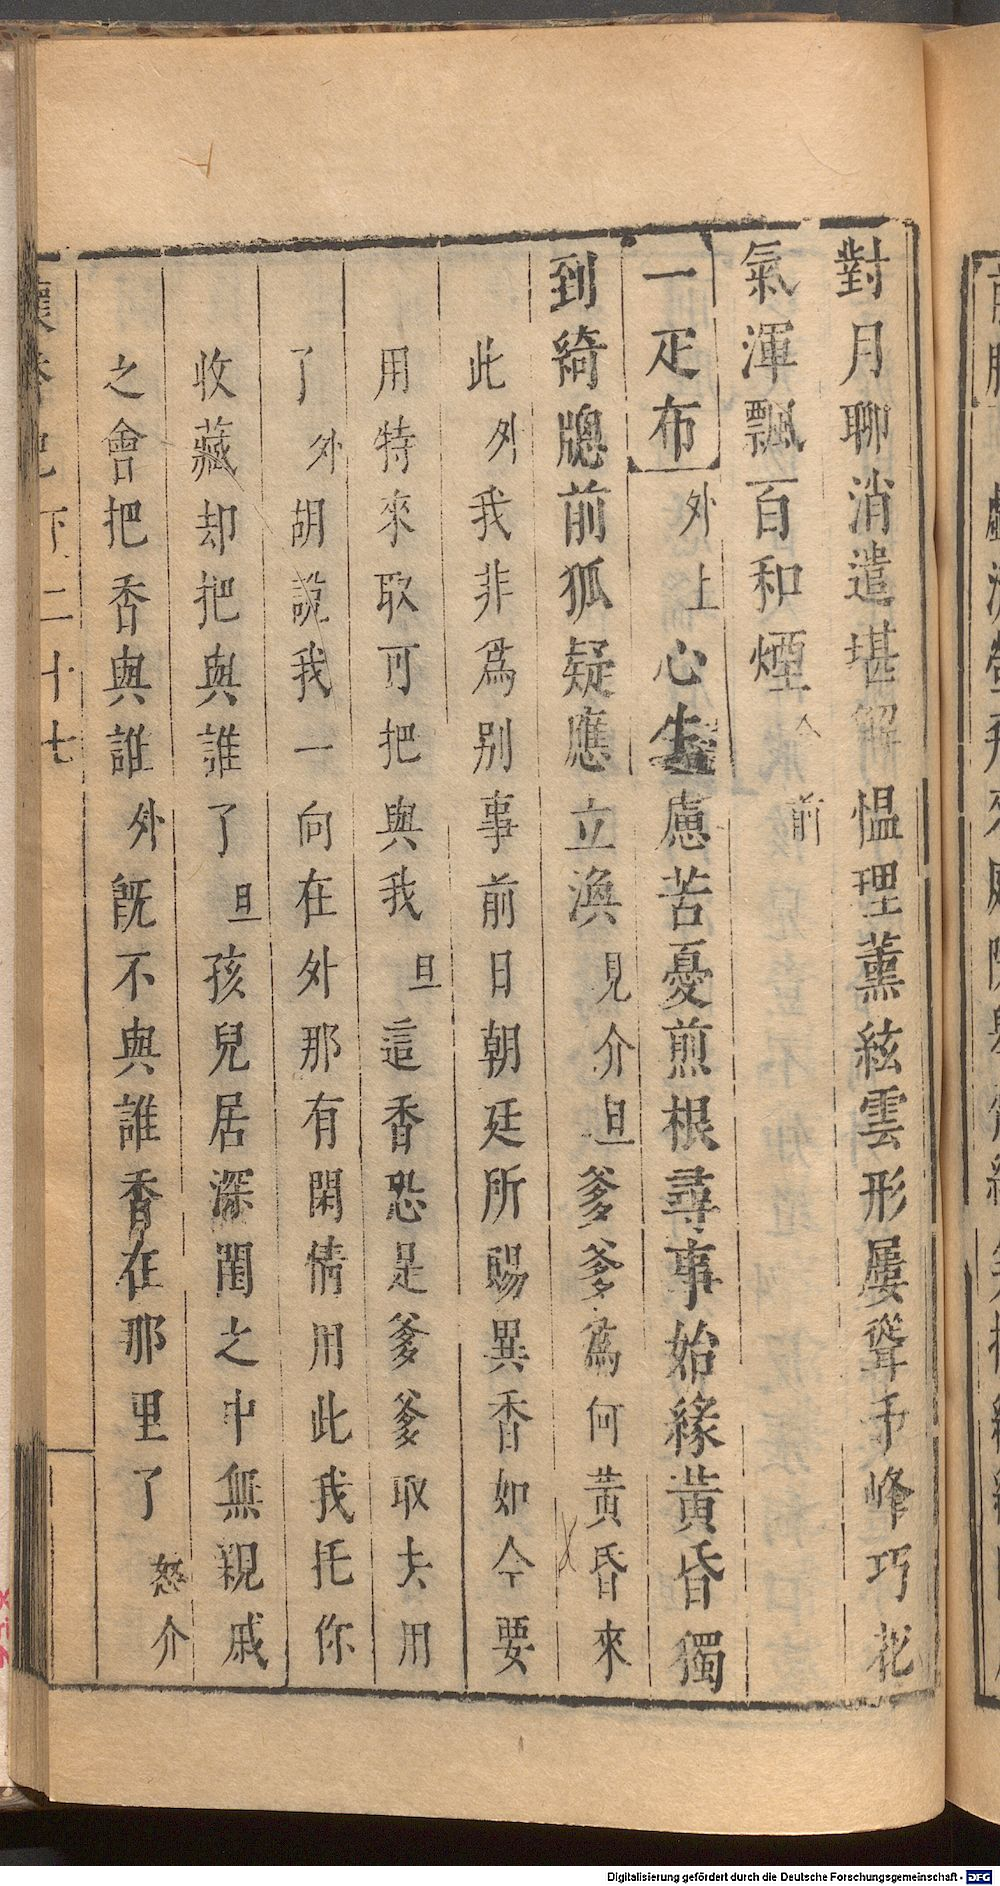 對月聊消遣堪解慍理薰絃雲形屢聳千峰巧
氣渾飄百和煙 前
一疋布 外上 心生慮苦憂煎根尋事始緣黃昏獨
到綺牕前狐疑應立渙 見介 旦 爹爹為何黃昏來
此 外 我非為別事前日朝廷所賜異香如今要
用特來取可把與我 旦 這香恐是爹爹取去用
了 外 胡說我一向在外那有閑情用此我托你
收藏却把與誰了 旦 孩兒居深閨之中無親戚
之會把香與誰 外 旣不與誰香在那里了 怒介
懷香記下 二十七
Digitalisierung gefördert durch die Deutsche Forschungsgemeinschaft - DFG